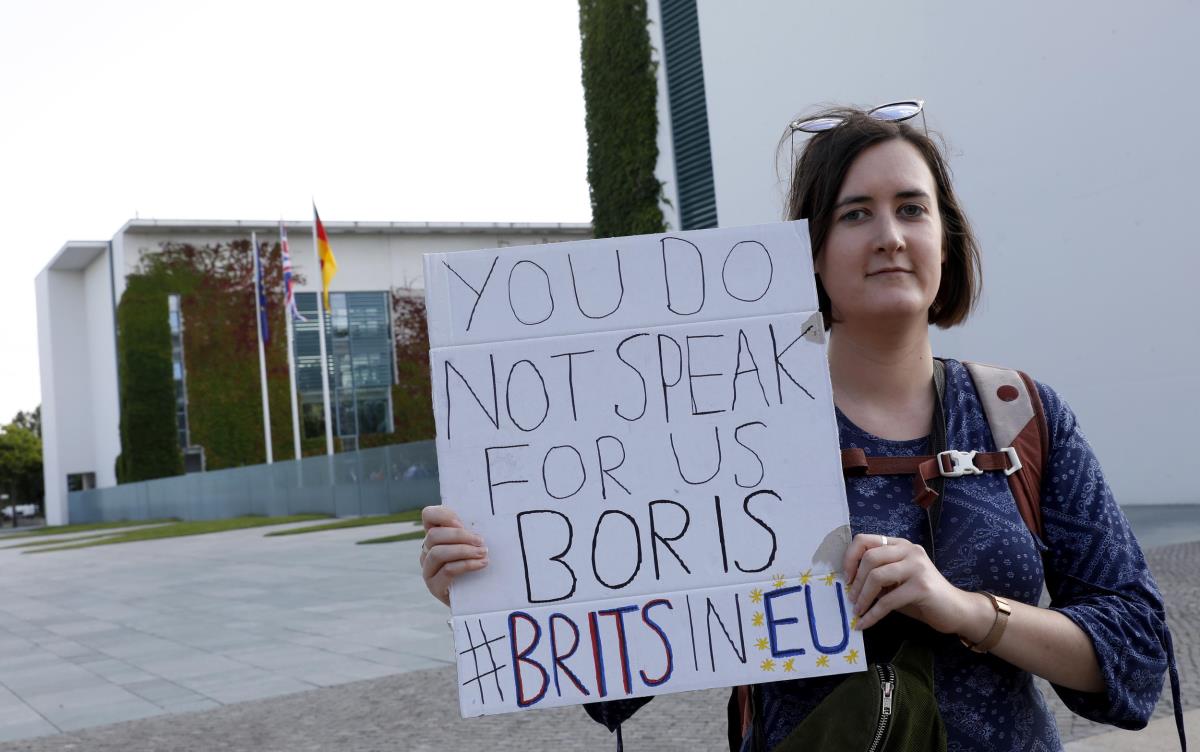 YOU DO
NOT SPEAK
FOR US
BORIS
#BRITSIN EU